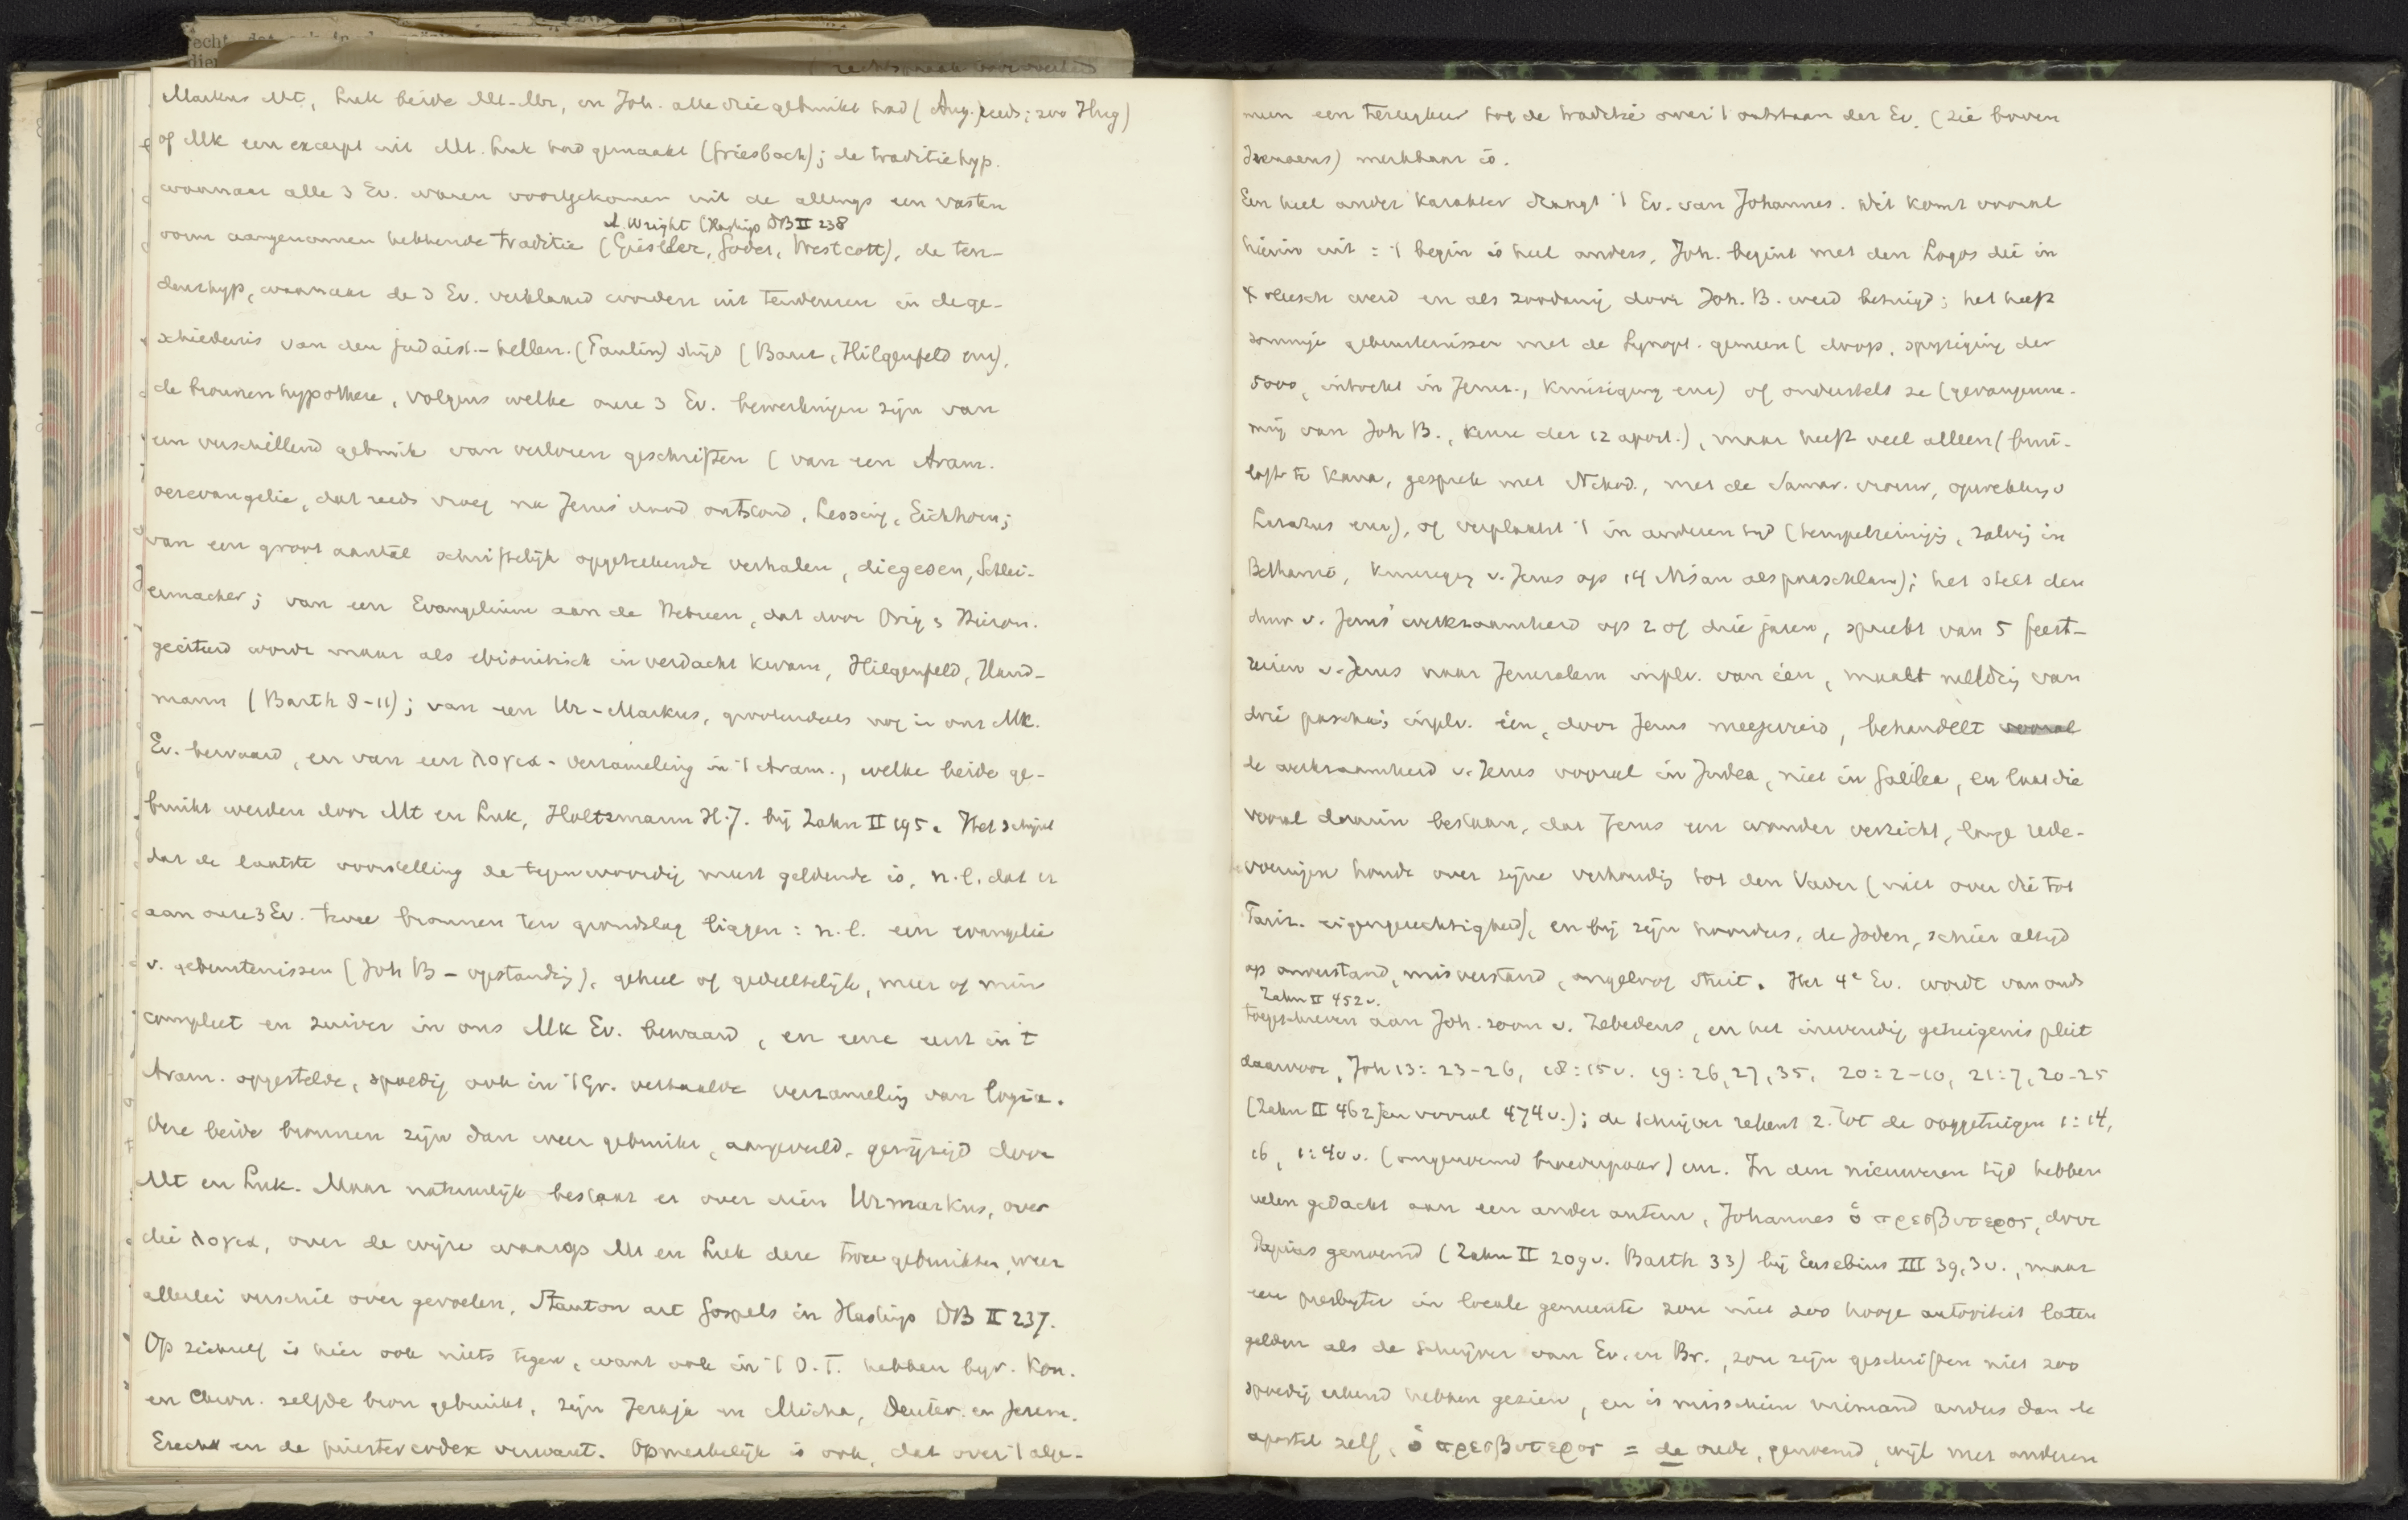 Markus Mt, Luk beide Mt-Mr, en Joh. alle drie gebruikt had (Aug. reeds; zoo Hug)
of Mk een excerpt uit Mt. Luk had gemaakt (Griesbach); de traditiehyp.
waarnaar alle 3 Ev. waren voortgekomen uit de allengs een vasten
A. Wright (Hastings DB II 238
vorm aangenomen hebbende traditie (Gieseler, Godet, Westcott), de ten-
denzhyp, waarnaar de 3 Ev. verklaard worden uit tendenzen in de ge-
schiedenis van den judaist.-hellen. (Paulin) strijd (Baur, Hilgenfeld enz),
de bronnenhypothese, volgens welke onze 3 Ev. bewerkingen zijn van
een verschillend gebruik van verloren geschriften (van een Aram.
oerevangelie, dat reeds vroeg na Jezus' dood ontstond, Lessing, Eichhorn;
van een groot aantal schriftelijk opgetekende verhalen, diegesen, Schlei-
ermacher; van een Evangelium aan de Hebreen, dat door Orig. & Hieron.
geciteerd wordt maar als ebionitisch in verdacht kwam, Hilgenfeld, Hand-
mann (Barth 8-11); van een Ur-Markus, grootendeels nog in ons Mk.
Ev. bewaard, en van een λογια-verzameling in 't Aram., welke beide ge-
bruikt werden door Mt en Luk, Holtzmann H.J. bij Zahn II 195. Het schijnt
dat de laatste voorstelling de tegenwoordig meest geldende is, n.l. dat er
aan onze 3 Ev. twee bronnen ten grondslag liggen: n.l. een evangelie
v. gebeurtenissen (Joh B - opstanding), geheel of gedeeltelijk, meer of min
compleet en zuiver in ons Mk Ev. bewaard, en eene eerst in 't
Aram. opgestelde, spoedig ook in 't Gr. vertaalde verzameling van logia.
Deze beide bronnen zijn dan weer gebruikt, aangevuld, gewijzigd door
Mt en Luk. Maar natuurlijk bestaat er over dien Urmarkus, over
die λογια, over de wijze waarop Mt en Luk deze twee gebruikten, weer
allerlei verschil over gevoelen, Stanton art Gospels in Hastings DB II 237.
Op zichzelf is hier ook niets tegen, want ook in 't O.T. hebben bijv. Kon.
en Chron. zelfde bron gebruikt, zijn Jesaja en Micha, Deuter. en Jerem.
Ezech en de priestercodex verwant. Opmerkelijk is ook, dat over 't alge-
meen een terugkeer tot de traditie over 't ontstaan der Ev. (zie boven
Irenaeus) merkbaar is.
Een heel ander karakter draagt 't Ev. van Johannes. Dit komt vooral
hierin uit: 't begin is heel anders, Joh. begint met den Logos die in
't vleesch werd en als zoodanig door Joh. B. werd betuigd; het heeft
sommige gebeurtenissen met de Synopt. gemeen (doop, spijziging der
5000, intocht in Jeruz., kruisiging enz) of onderstelt ze (gevangenne-
ming van Joh B., keuze der 12 apost.), maar heeft veel alleen (brui-
loft te Kana, gesprek met Nikod., met de Samar. vrouw, opwekking v
Lazarus enz), of verplaatst 't in anderen tijd (tempelreiniging, zalving in
Bethanië, kruisiging v. Jezus op 14 Nisan als paaschlam); het stelt den
duur v. Jezus' werkzaamheid op 2 of drie jaren, spreekt van 5 feest-
reizen v. Jezus naar Jeruzalem inplv. van één, maakt melding van
drie pascha's inplv. één, door Jezus meegevierd, behandelt vooral
de werkzaamheid v. Jezus vooral in Judea, niet in Galilea, en laat die
vooral daarin bestaan, dat Jezus een wonder verricht, lange rede-
voeringen houdt over zijne verhouding tot den Vader (niet over die tot
Fariz. eigengerechtigheid), en bij zijn hoorders, de Joden, schier altijd
op onverstand, misverstand, ongeloof stuit. Het 4e Ev. wordt van ouds
Zahn II 452v.
toegeschreven aan Joh. zoon v. Zebedeus, en het inwendig getuigenis pleit
daarvoor, Joh 13: 23-26, 18:15v. 19:26,27,35, 20:2-10, 21:7,20-25
(Zahn II 462 en vooral 474v.); de schrijver rekent z. tot de ooggetuigen 1:14,
16, 1:40v. (ongenoemd broederpaar) enz. In den nieuweren tijd hebben
velen gedacht aan een ander auteur, Johannes ὁ πρεσβυτερος, door
Papias genoemd (Zahn II 209v. Barth 33) bij Eusebius III 39,3v., maar
een presbyter in locale gemeente zou niet zoo hooge autoriteit laten
gelden als de schrijver van Ev. en Br., zou zijn geschriften niet zoo
spoedig erkend hebben gezien, en is misschien niemand anders dan de
apostel zelf, ὁ πρεσβυτερος = de oude, genoemd, wijl met anderen